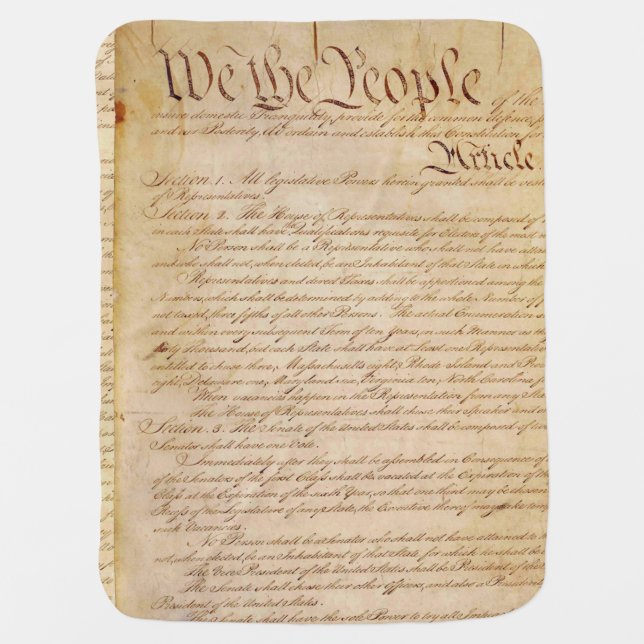 We the People of the
insure domestic Tranquility, provide for the common defence, p
and our Posterity, do ordain and establish this Constitution for
Article.
Section. 1. All legislative Powers herein granted shall be veste
of Representatives.
Section. 2. The House of Representatives shall be composed of
in each State shall have the Qualifications requisite for Electors of the most n
No Person shall be a Representative who shall not have attai
and who shall not, when elected, be an Inhabitant of that State in which
Representatives and direct Taxes shall be apportioned among the
Numbers, which shall be determined by adding to the whole Number of f
not taxed, three fifths of all other Persons. The actual Enumeration s
and within every subsequent Term of ten Years, in such Manner as th
thirty Thousand, but each State shall have at Least one Representative
entitled to chuse three, Massachusetts eight, Rhode Island and Prov
eight, Delaware one, Maryland six, Virginia ten, North Carolina f
When vacancies happen in the Representation from any Stat
The House of Representatives shall chuse their Speaker and o
Section. 3. The Senate of the United States shall be composed of tw
Senator shall have one Vote.
Immediately after they shall be assembled in Consequence of
of the Senators of the first Class shall be vacated at the Expiration of th
Class at the Expiration of the sixth Year, so that one third may be chosen
Recess of the Legislature of any State, the Executive thereof may make tem
such Vacancies.
No Person shall be a Senator who shall not have attained to t
not, when elected, be an Inhabitant of that State for which he shall be
The Vice President of the United States shall be President of the
The Senate shall chuse their other Officers, and also a President
President of the United States.
The Senate shall have the sole Power to try all Impea